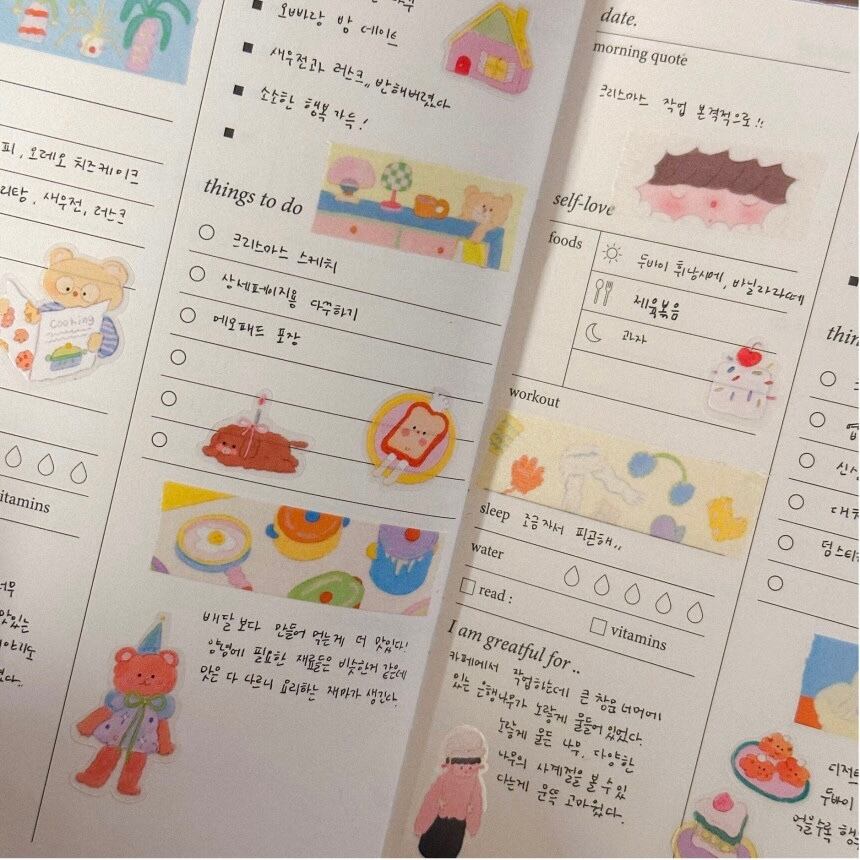 피, 오레오 치즈케이크
리탕, 새우전, 러스크
Cooking
vitamins
오빠랑 밤 데이트
새우전과 러스크,, 반해버렸다
소소한 행복 가득!
things to do
크리스마스 스케치
상세페이지용 다꾸하기
메모패드 포장
배달보다 만들어 먹는게 더 맛있다!
양념에 필요한 재료들은 비슷한거 같은데
맛은 다 다르니 요리하는 재미가 생긴다.
date.
morning quote
크리스마스 작업 본격적으로!!
self-love
foods
두바이 휘낭시에, 바닐라라떼
제육볶음
과자
workout
sleep 조금자서 피곤해,,
water
read :
vitamins
I am greatful for..
카페에서 작업하는데 큰 창문 너머에
있는 은행나무가 노랗게 물들어 있었다.
노랗게 물든 나무, 다양한
나무의 사계절을 볼 수 있
다는게 문득 고마웠다.
thin
신상
두바이